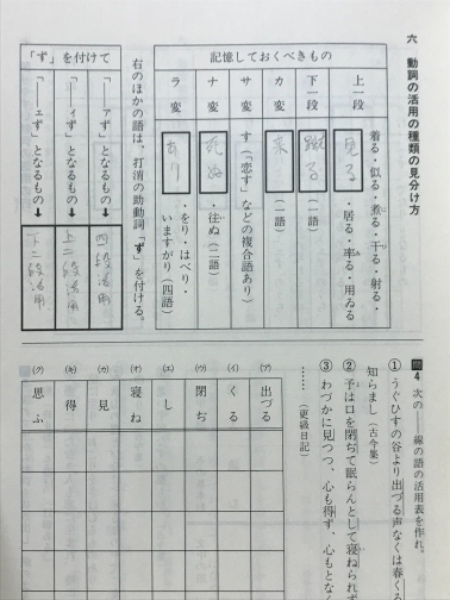 六 動詞の活用の種類の見分け方
記憶しておくべきもの
上一段
着る・似る・煮る・干る・射る・
見る・居る・率る・用ゐる
下一段
蹴る（一語）
カ変
来（一語）
サ変
す（「恋す」などの複合語あり）
ナ変
死ぬ・往ぬ（二語）
ラ変
あり・をり・はべり・
いますがり（四語）
右のほかの語は、打消の助動詞「ず」を付ける。
「ず」を付けて
「――ァず」となるもの➡四段活用
「――ィず」となるもの➡上二段活用
「――ェず」となるもの➡下二段活用
問4 次の――線の語の活用表を作れ。
①うぐひすの谷より出づる声なくは春くる
知らまし（古今集）
②予は口を閉ぢて眠らんとして寝ねられず
③わづかに見つつ、心も得ず、心もとなく
……（更級日記）
(ア) 出づる
(イ) くる
(ウ) 閉ぢ
(エ) し
(オ) 寝ね
(カ) 見
(キ) 得
(ク) 思ふ